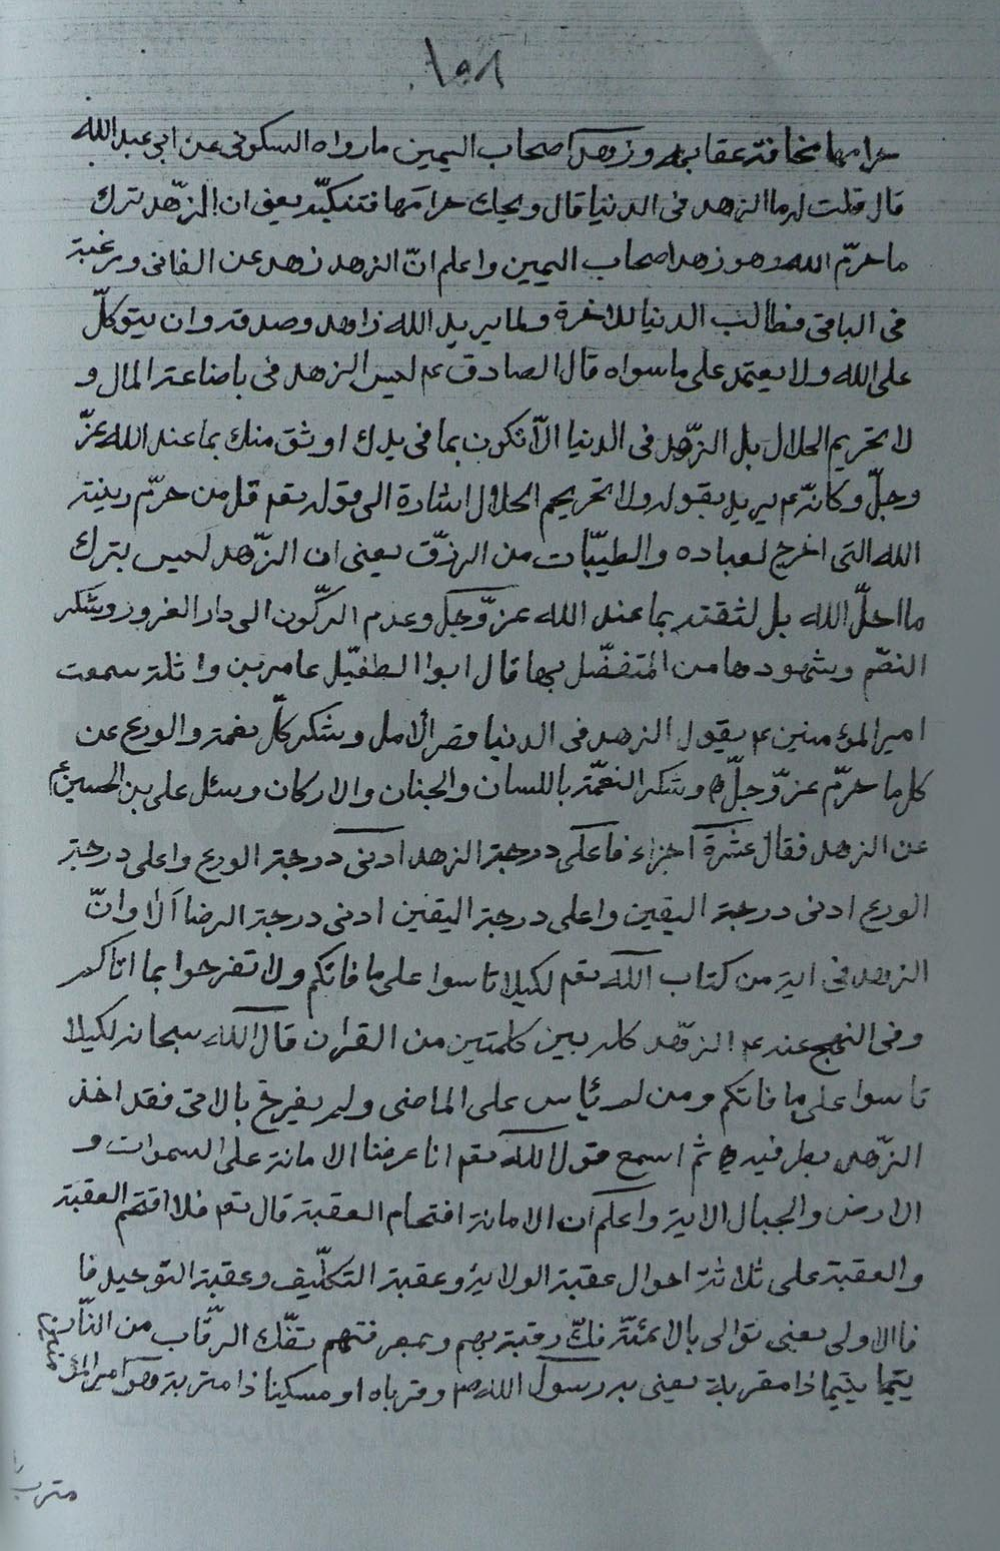 ١٥٨
حرامها مخافة عقابه وزهد اصحاب اليمين مارواه السكوني عن ابي عبد الله
قال قلت له ما الزهد في الدنيا قال ويحك حرامها فتنكبه يعني ان الزّهد ترك
ما حرّم الله وهو زهد اصحاب اليمين واعلم انّ الزهد زهد عن الفاني ورغبة
في الباقي فطالب الدنيا للاخرة ولما يريد الله زاهد وصدقه وان يتوكلّ
على الله ولا يعتمد على ما سواه قال الصادق ع م ليس الزهد في باضاعة المال و
لا تحريم الحلال بل الزّهد في الدنيا الّا تكون بما في يدك اوثق منك بما عند الله عزّ
وجلّ وكانّه ع م يريد بقوله ولا تحريم الحلال اشارة الى قوله تعم قل من حرّم زينة
الله التى اخرج لعباده والطيّبات من الرزق يعنى ان الزّهد ليس بترك
ما احلّ الله بل لثقته بما عند الله عزّ وجلّ وعدم الركّون الى دار الغرور ويشكر
النعم ويشهودها من المتفضّل بها قال ابوا الطفيّل عامر بن واثلة سمعت
امير المؤمنين ع م يقول الزهد في الدنيا قصر الأمل وشكر كلّ نعمة والورع عن
كل ما حرّم عزّ وجلّ وشكر النعمّة باللسان والجنان والاركان وسئل على بن الحسين ع م
عن الزهد فقال عشرة اجزاء فاعلى درجة الزهد ادنى درجة الورع واعلى درجة
الورع ادنى درجة اليقين واعلى درجة اليقين ادنى درجة الرضا ألا وانّ
الزهد في اية من كتاب الله تعم لكيلا تاسوا على ما فاتكم ولا تفرحوا بما اتاكم
وفى النهج عنه ع م الزهّد كله بين كلمتين من القران قال الله سبحانه لكيلا
تاسوا على ما فاتكم ومن لم يئاس على الماضى ولم يفرح بالاتى فقد اخذ
الزّهد بطرفيه ثم اسمع قول الله تعم انا عرضنا الامانة على السموات و
الارض والجبال الاية واعلم ان الامانة افتحام العقبة قال تعم فلا اقتحم العقبة
والعقبة على ثلاثة احوال عقبة الولاية وعقبة التكلّيف وعقبة التوحيد فا
فاالاولى يعنى توالى بالائمّة فكّ رقبة بهم وبمعرفتهم تفّك الرقّاب من النّار
يتيما يتيما ذا مقربة يعنى به رسول الله ص وقرباه او مسكينا ذا متربة وهو امير المؤمنين
مترب